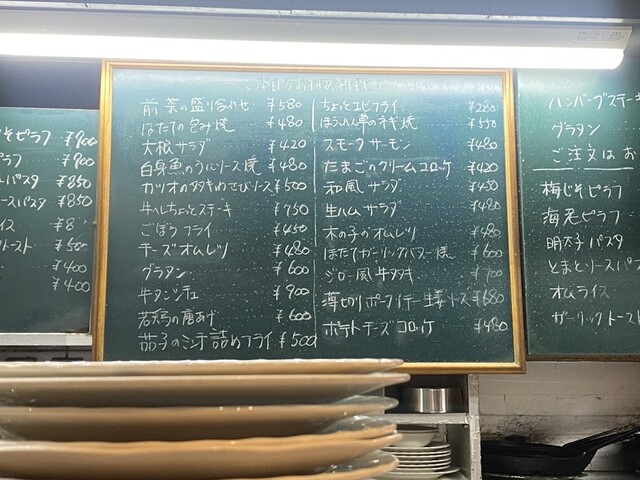 本日のおすすめ料理
前菜の盛り合わせ ¥580
ほたての包み焼 ¥480
大根サラダ ¥420
白身魚のうにソース焼 ¥480
カツオのタタキわさびソース ¥500
牛ヘレちょっとステーキ ¥750
ごぼうフライ ¥450
チーズオムレツ ¥480
グラタン ¥600
牛タンシチュ ¥900
若鶏の唐あげ ¥600
茄子のミンチ詰めフライ ¥500
ちょっとエビフライ ¥280
ほうれん草のネギ焼 ¥550
スモークサーモン ¥480
たまごのクリームコロッケ ¥420
和風サラダ ¥450
生ハムサラダ ¥480
木の子のオムレツ ¥480
ほたてガーリックバター焼 ¥600
ジロー風牛タタキ ¥700
薄切りポークソテー生姜ソース ¥680
ポテトチーズコロッケ ¥480
そピラフ ¥900
ラフ ¥900
パスタ ¥850
ースパスタ ¥850
イス ¥8
トースト ¥500
¥400
¥400
ハンバーグステーキ
グラタン
ご注文はお
梅じそピラフ
海老ピラフ
明太子パスタ
とまとソースパス
オムライス
ガーリックトースト